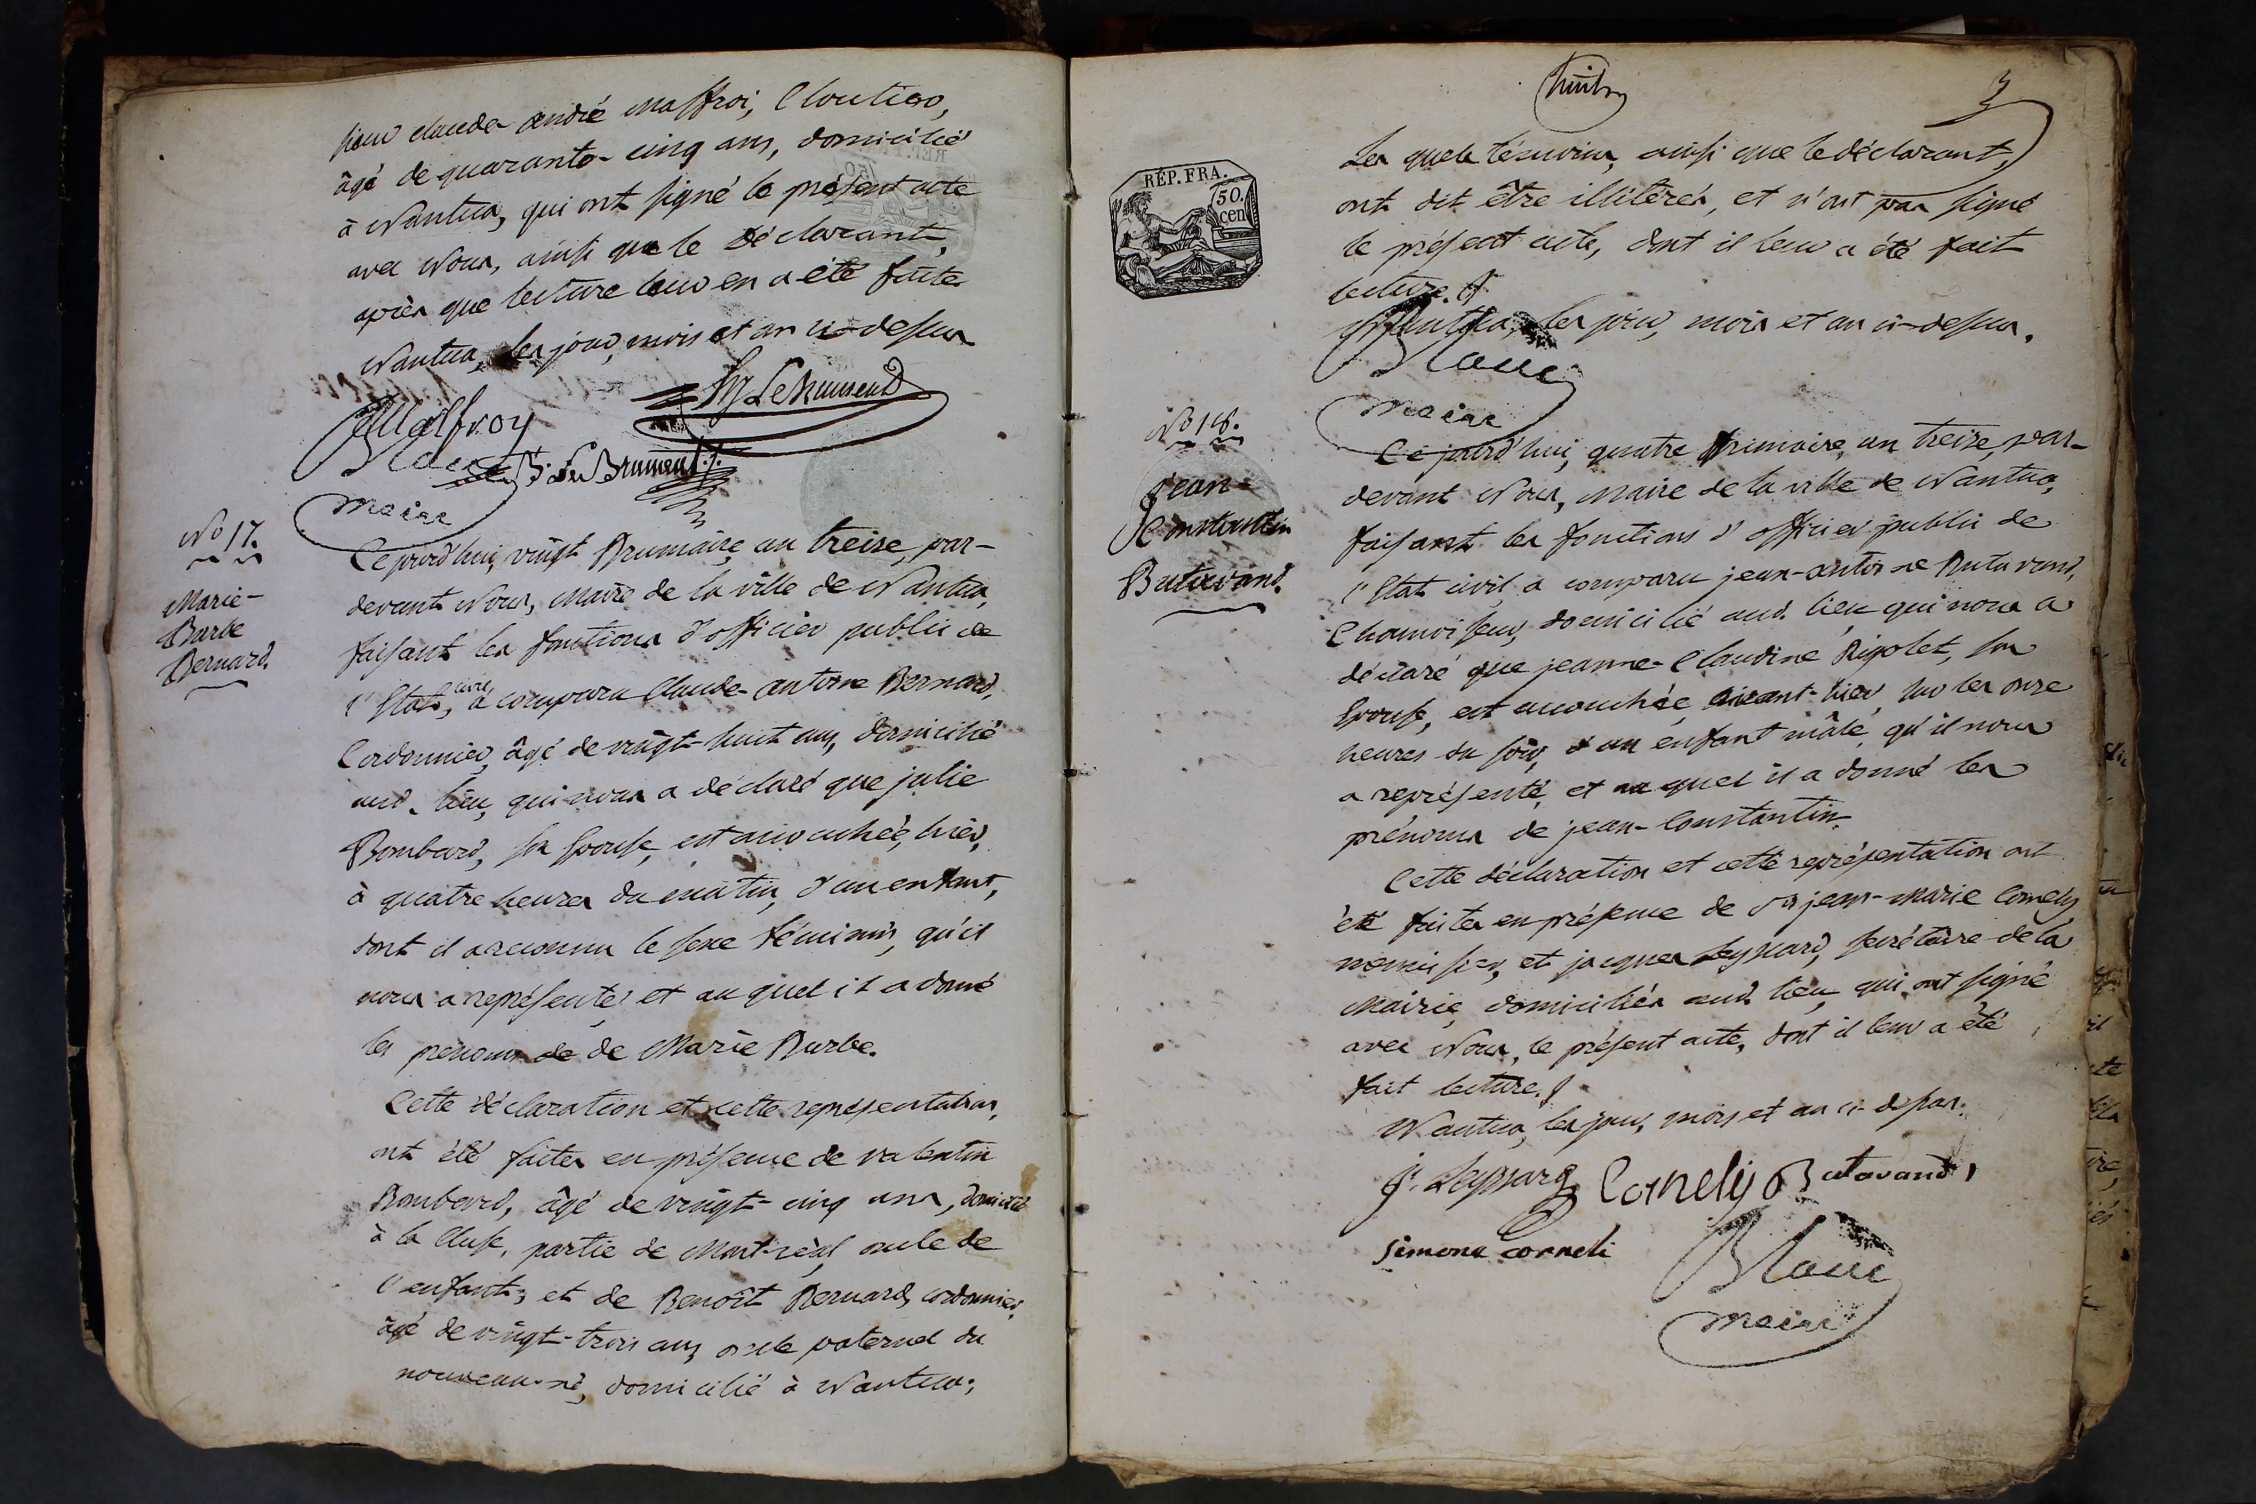 sieur claude andré Maffroi, Cloutier,
âgé de quarante-cinq ans, domicilié
à Nantua, qui ont signé le présent acte
avec Nous, ainsi que le Déclarant,
après que lecture leur en a été faite.
Nantua, les jour, mois et an ci-dessus
Malfroy
Blanc
maire
No 17.
Marie-
Barbe
Bernard.
Cejourd'hui, vingt Brumaire, an treize, par-
devant Nous, Maire de la ville de Nantua,
faisant les fonctions d'officier public de
l'Etat civil, a comparu Claude-antoine Bernard,
Cordonnier, âgé de vingt-huit ans, domicilié
aud. lieu, qui nous a déclaré que julie
Bombard, sa Epouse, est accouchée, hier,
à quatre heures du matin, d'un enfant,
dont il a reconnu le sexe féminin, qu'il
nous a représenté et au quel il a donné
les prénoms de de Marie Barbe.
Cette déclaration et cette représentation,
ont été faites en présence de valentin
Bombard, âgé de vingt-cinq ans, domicilié
à la Cluse, partie de Mont-réal, oncle de
l'enfant; et de Benoît Bernard, cordonnier,
âgé de vingt-trois ans, oncle paternel du
nouveau-né, domicilié à Nantua;
huit
3
REP. FRA.
50.
cen
Les quels témoins, ainsi que le déclarant,
ont dit être illitérés, et n'ont pas signé
le présent acte, dont il leur a été fait
lecture.
Nantua, les jour, mois et an ci-dessus.
Blanc
maire
No 18.
Jean-
Constantin
Butavand.
Cejourd'hui, quatre frimaire, an treize, par-
devant Nous, Maire de la ville de Nantua,
faisant les fonctions d'officier public de
l'Etat civil, a comparu jean-antoine Butavand,
Chamoiseur, domicilié aud. lieu, qui nous a
déclaré que jeanne-Claudine Rigolet, son
Epouse, est accouchée, avant-hier, sur les onze
heures du soir, d'un enfant mâle, qu'il nous
a représenté, et au quel il a donné les
prénoms de jean-Constantin.
Cette déclaration et cette représentation ont
été faites en présence de jean-Marie Cornely
menuisier, et jacques Leyssard, secrétaire de la
Mairie, domiciliés aud. lieu, qui ont signé
avec Nous, le présent acte, dont il leur a été
fait lecture.
Nantua, les jour, mois et an ci-dessus.
J. Leyssard Cornely Butavand
simone corneli
Blanc
maire